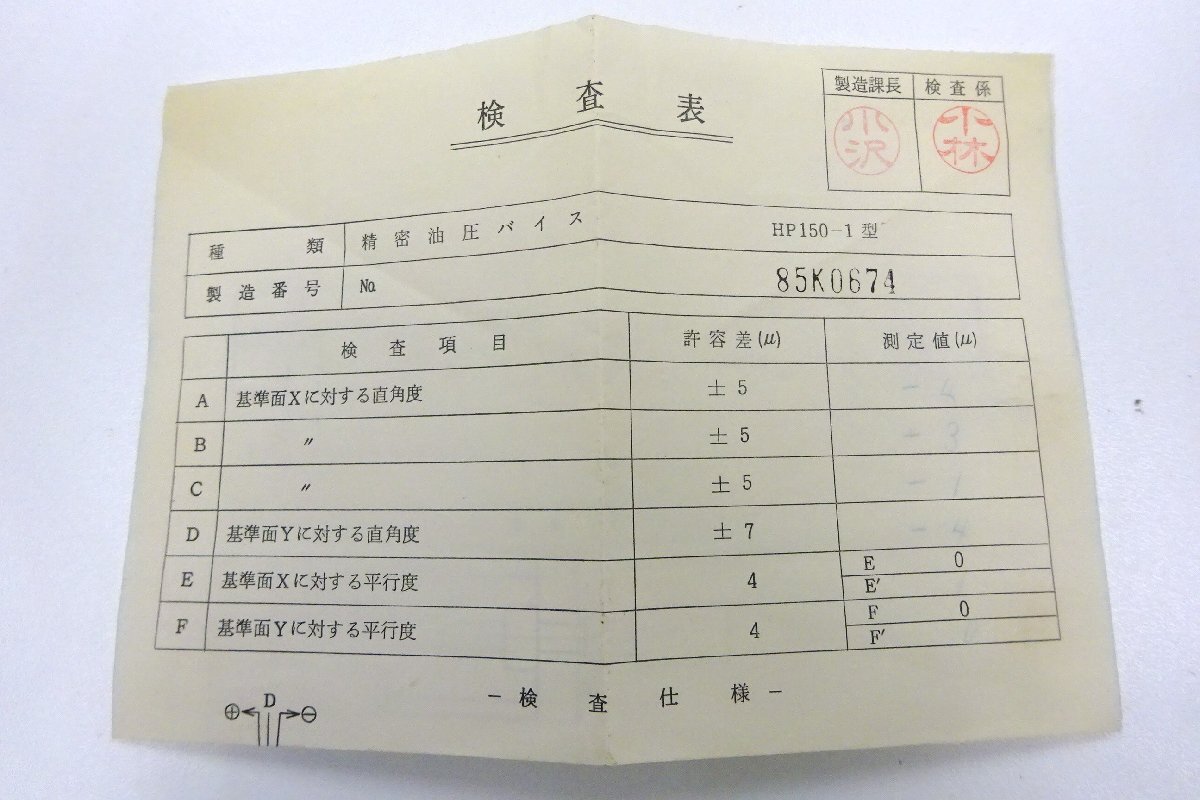 検査表
製造課長 検査係
小沢 小林
種類 精密油圧バイス HP150-1型
製造番号 No. 85K0674
検査項目 許容差(μ) 測定値(μ)
A 基準面Xに対する直角度 ±5
B 〃 ±5 3
C 〃 ±5 - 1
D 基準面Yに対する直角度 ±7 - 4
E 基準面Xに対する平行度 4 E 0
E′
F 基準面Yに対する平行度 4 F 0
F′
-検査仕様-
⊕ D ⊖